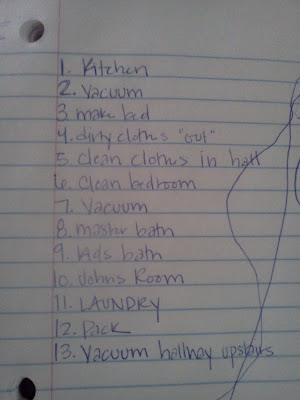 1. Kitchen
2. Vacuum
3. make bed
4. dirty clothes "out"
5. clean clothes in hall
6. Clean bedroom
7. Vacuum
8. master bath
9. kids bath
10. Johns Room
11. LAUNDRY
12. Pick
13. Vacuum hallway upstairs